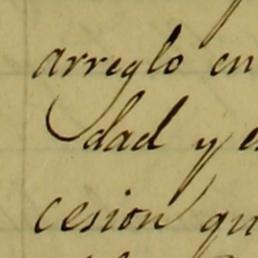 arreglo en
dad y e
cesion qu